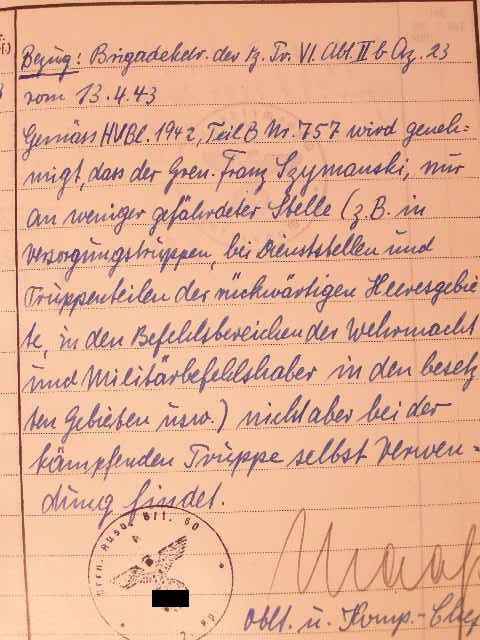 Bezug: Brigadekdr. der Pz. Tr. VI. Abt. II b Az. 23
vom 13.4.43
Gemäss HVBl. 1942, Teil B Nr. 757 wird geneh=
migt, dass der Gren. Franz Szymanski, nur
an weniger gefährdeter Stelle (z.B. in
Versorgungstruppen, bei Dienststellen und
Truppenteilen der rückwärtigen Heeresgebie
te, in den Befehlsbereichen der Wehrmacht
und Militärbefehlshaber in den besetz
ten Gebieten usw.) nicht aber bei der
kämpfenden Truppe selbst Verwen=
dung findet.
Gren. Ausb. Btl. 60
Oblt. u. Komp.-Chef